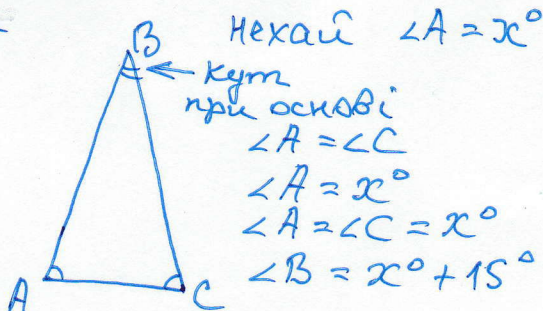 B
нехай ∠A = x°
кут
при основі
∠A = ∠C
∠A = x°
∠A = ∠C = x°
∠B = x° + 15°
A
C